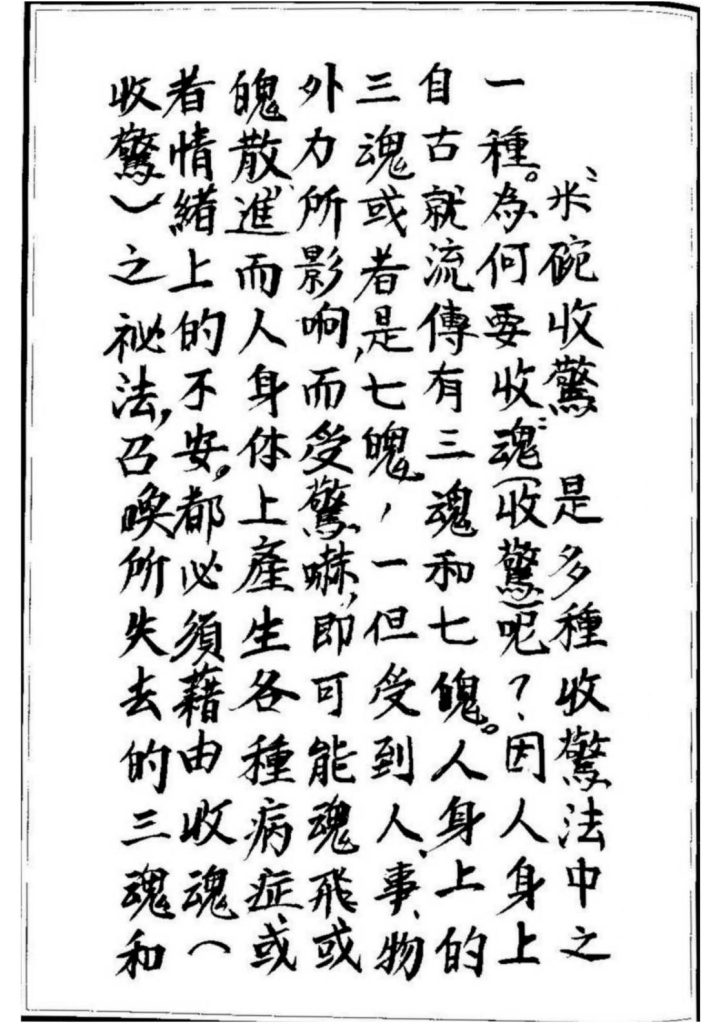 〝米碗收驚　是多種收驚法中之
一種。為何要收魂〞(收驚)呢？因人身上
自古就流傳有三魂和七魄。人身上的
三魂或者是七魄，一但受到人、事、物
外力所影响,而受驚嚇,即可能魂飛或
魄散、進而人身体上產生各種病症、或
者情緒上的不安,都必須藉由收魂(
收驚)之祕法,召喚所失去的三魂和